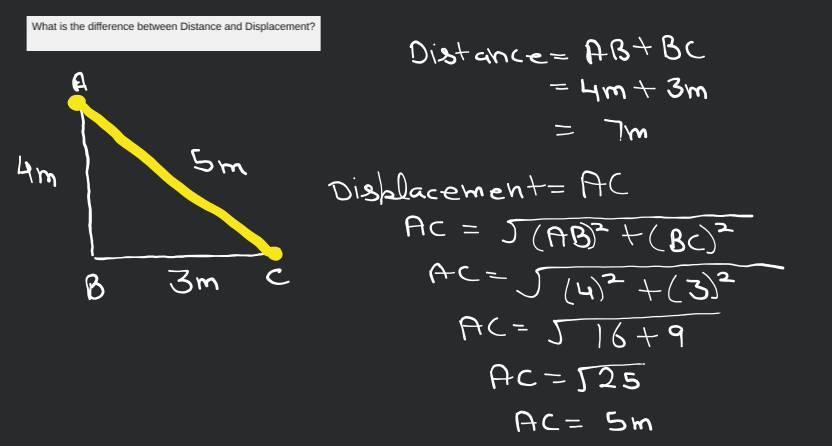 What is the difference between Distance and Displacement?
Distance = AB + BC
= 4m + 3m
= 7m
A
4m
5m
B
3m
C
Displacement = AC
AC = √(AB)² + (BC)²
AC = √(4)² + (3)²
AC = √16 + 9
AC = √25
AC = 5m